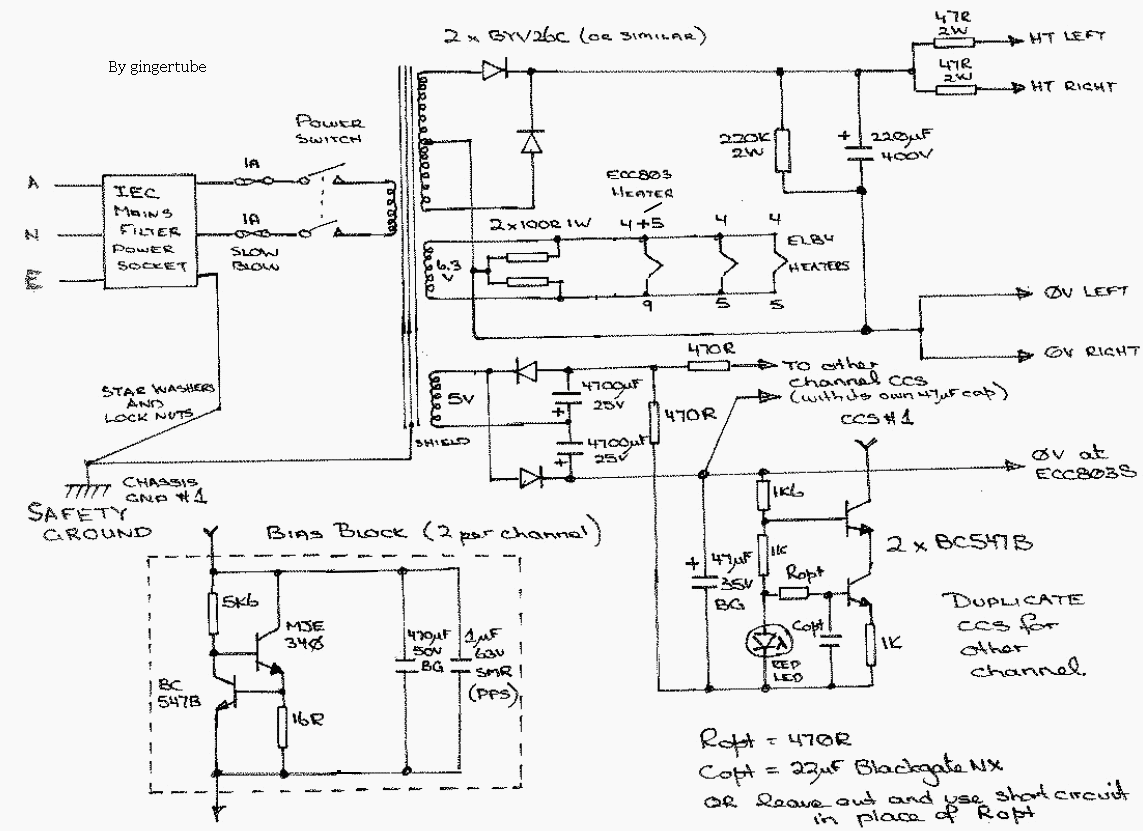 By gingertube
2 x BYV26C (OR SIMILAR)
47R
2W
HT LEFT
47R
2W
HT RIGHT
POWER
SWITCH
220K
2W
+
220µF
400V
A
N
E
IEC
MAINS
FILTER
POWER
SOCKET
1A
1A
SLOW
BLOW
ECC803
HEATER
2x100R 1W
4+5
4
4
6.3
V
EL84
HEATERS
9
5
5
ØV LEFT
ØV RIGHT
STAR WASHERS
AND
LOCK NUTS
5V
SHIELD
4700µF
25V
+
4700µF
25V
+
470R
470R
TO other
channel CCS
(with its own 47µF cap)
CCS #1
ØV at
ECC803S
CHASSIS
GND #1
SAFETY
GROUND
1K6
1K
+
47µF
35V
BG
Ropt
Copt
RED
LED
1K
2 x BC547B
DUPLICATE
CCS for
other
channel
BIAS BLOCK (2 per channel)
5K6
MJE
34Ø
BC
547B
16R
470µF
50V
BG
1µF
63V
SMR
(PPS)
Ropt = 470R
Copt = 22µF Blackgate NX
OR leave out and use short circuit
in place of Ropt